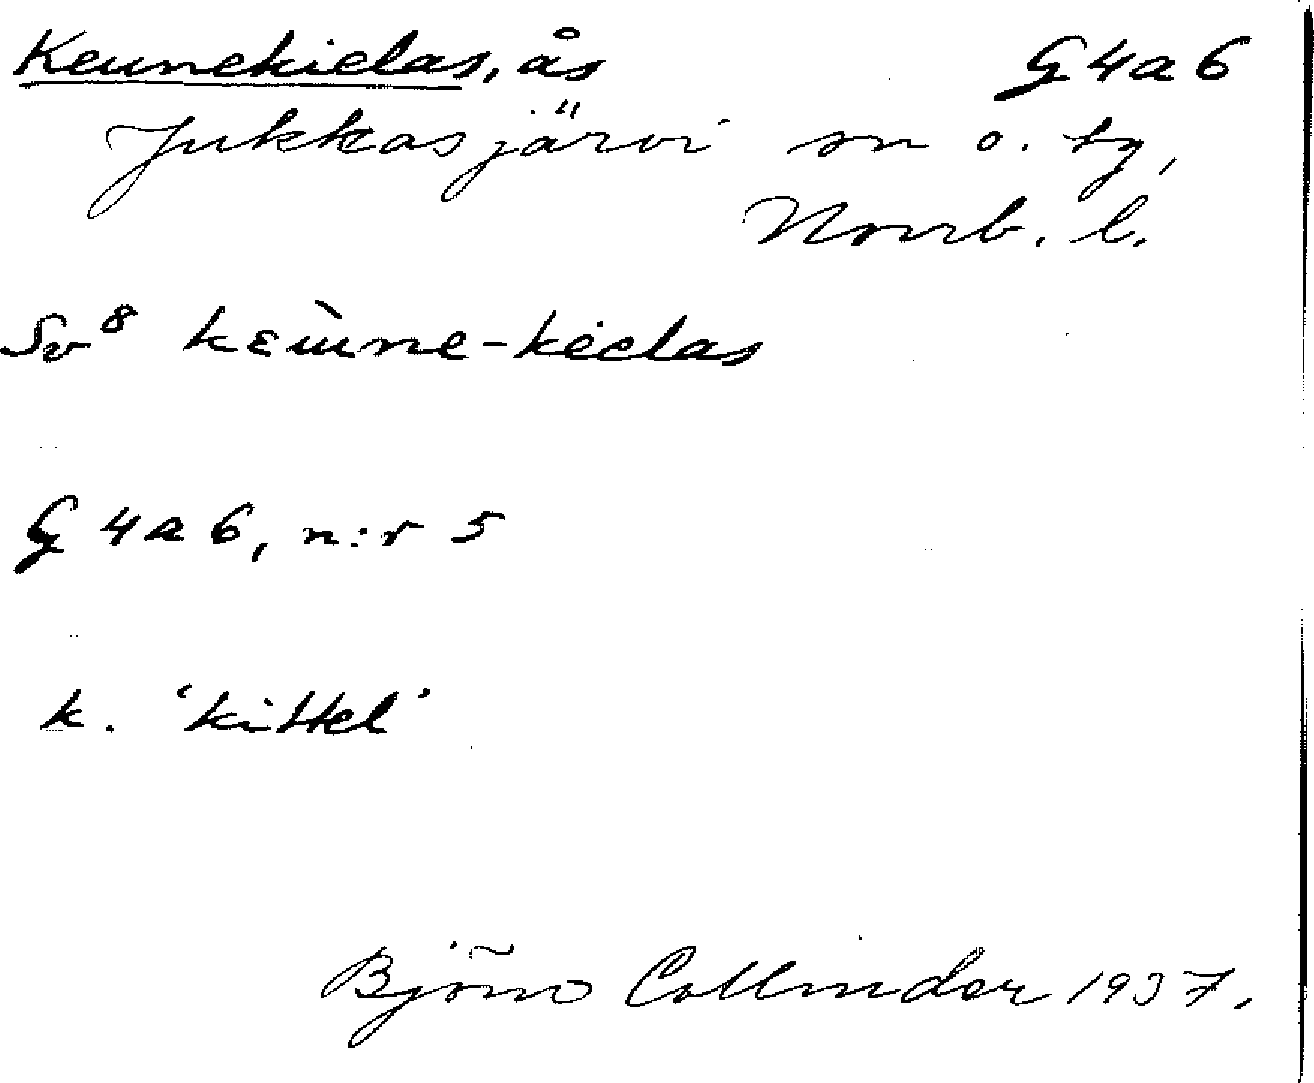 Keunekielas, ås G4a6
Jukkasjärvi sn o. tg,
Norrb. l.
Sv⁸ kɛu̇̀ne-kielas
G 4a 6, n:r 5
k. 'kittel'
Björn Collinder 1937.